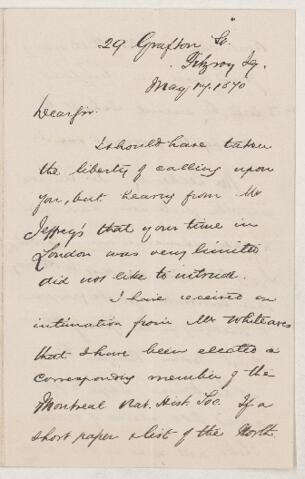 29 Grafton St.
Fitzroy Sq.
May 17. 1870
Dear Sir.
I should have taken
the liberty of calling upon
you, but hearing from Mr
Jeffreys that your time in
London was very limited
did not like to intrude.
I have received an
intimation from Mr Whiteaves
that I have been elected a
corresponding member of the
Montreal Nat. Hist. Soc. If a
short paper & list of the North